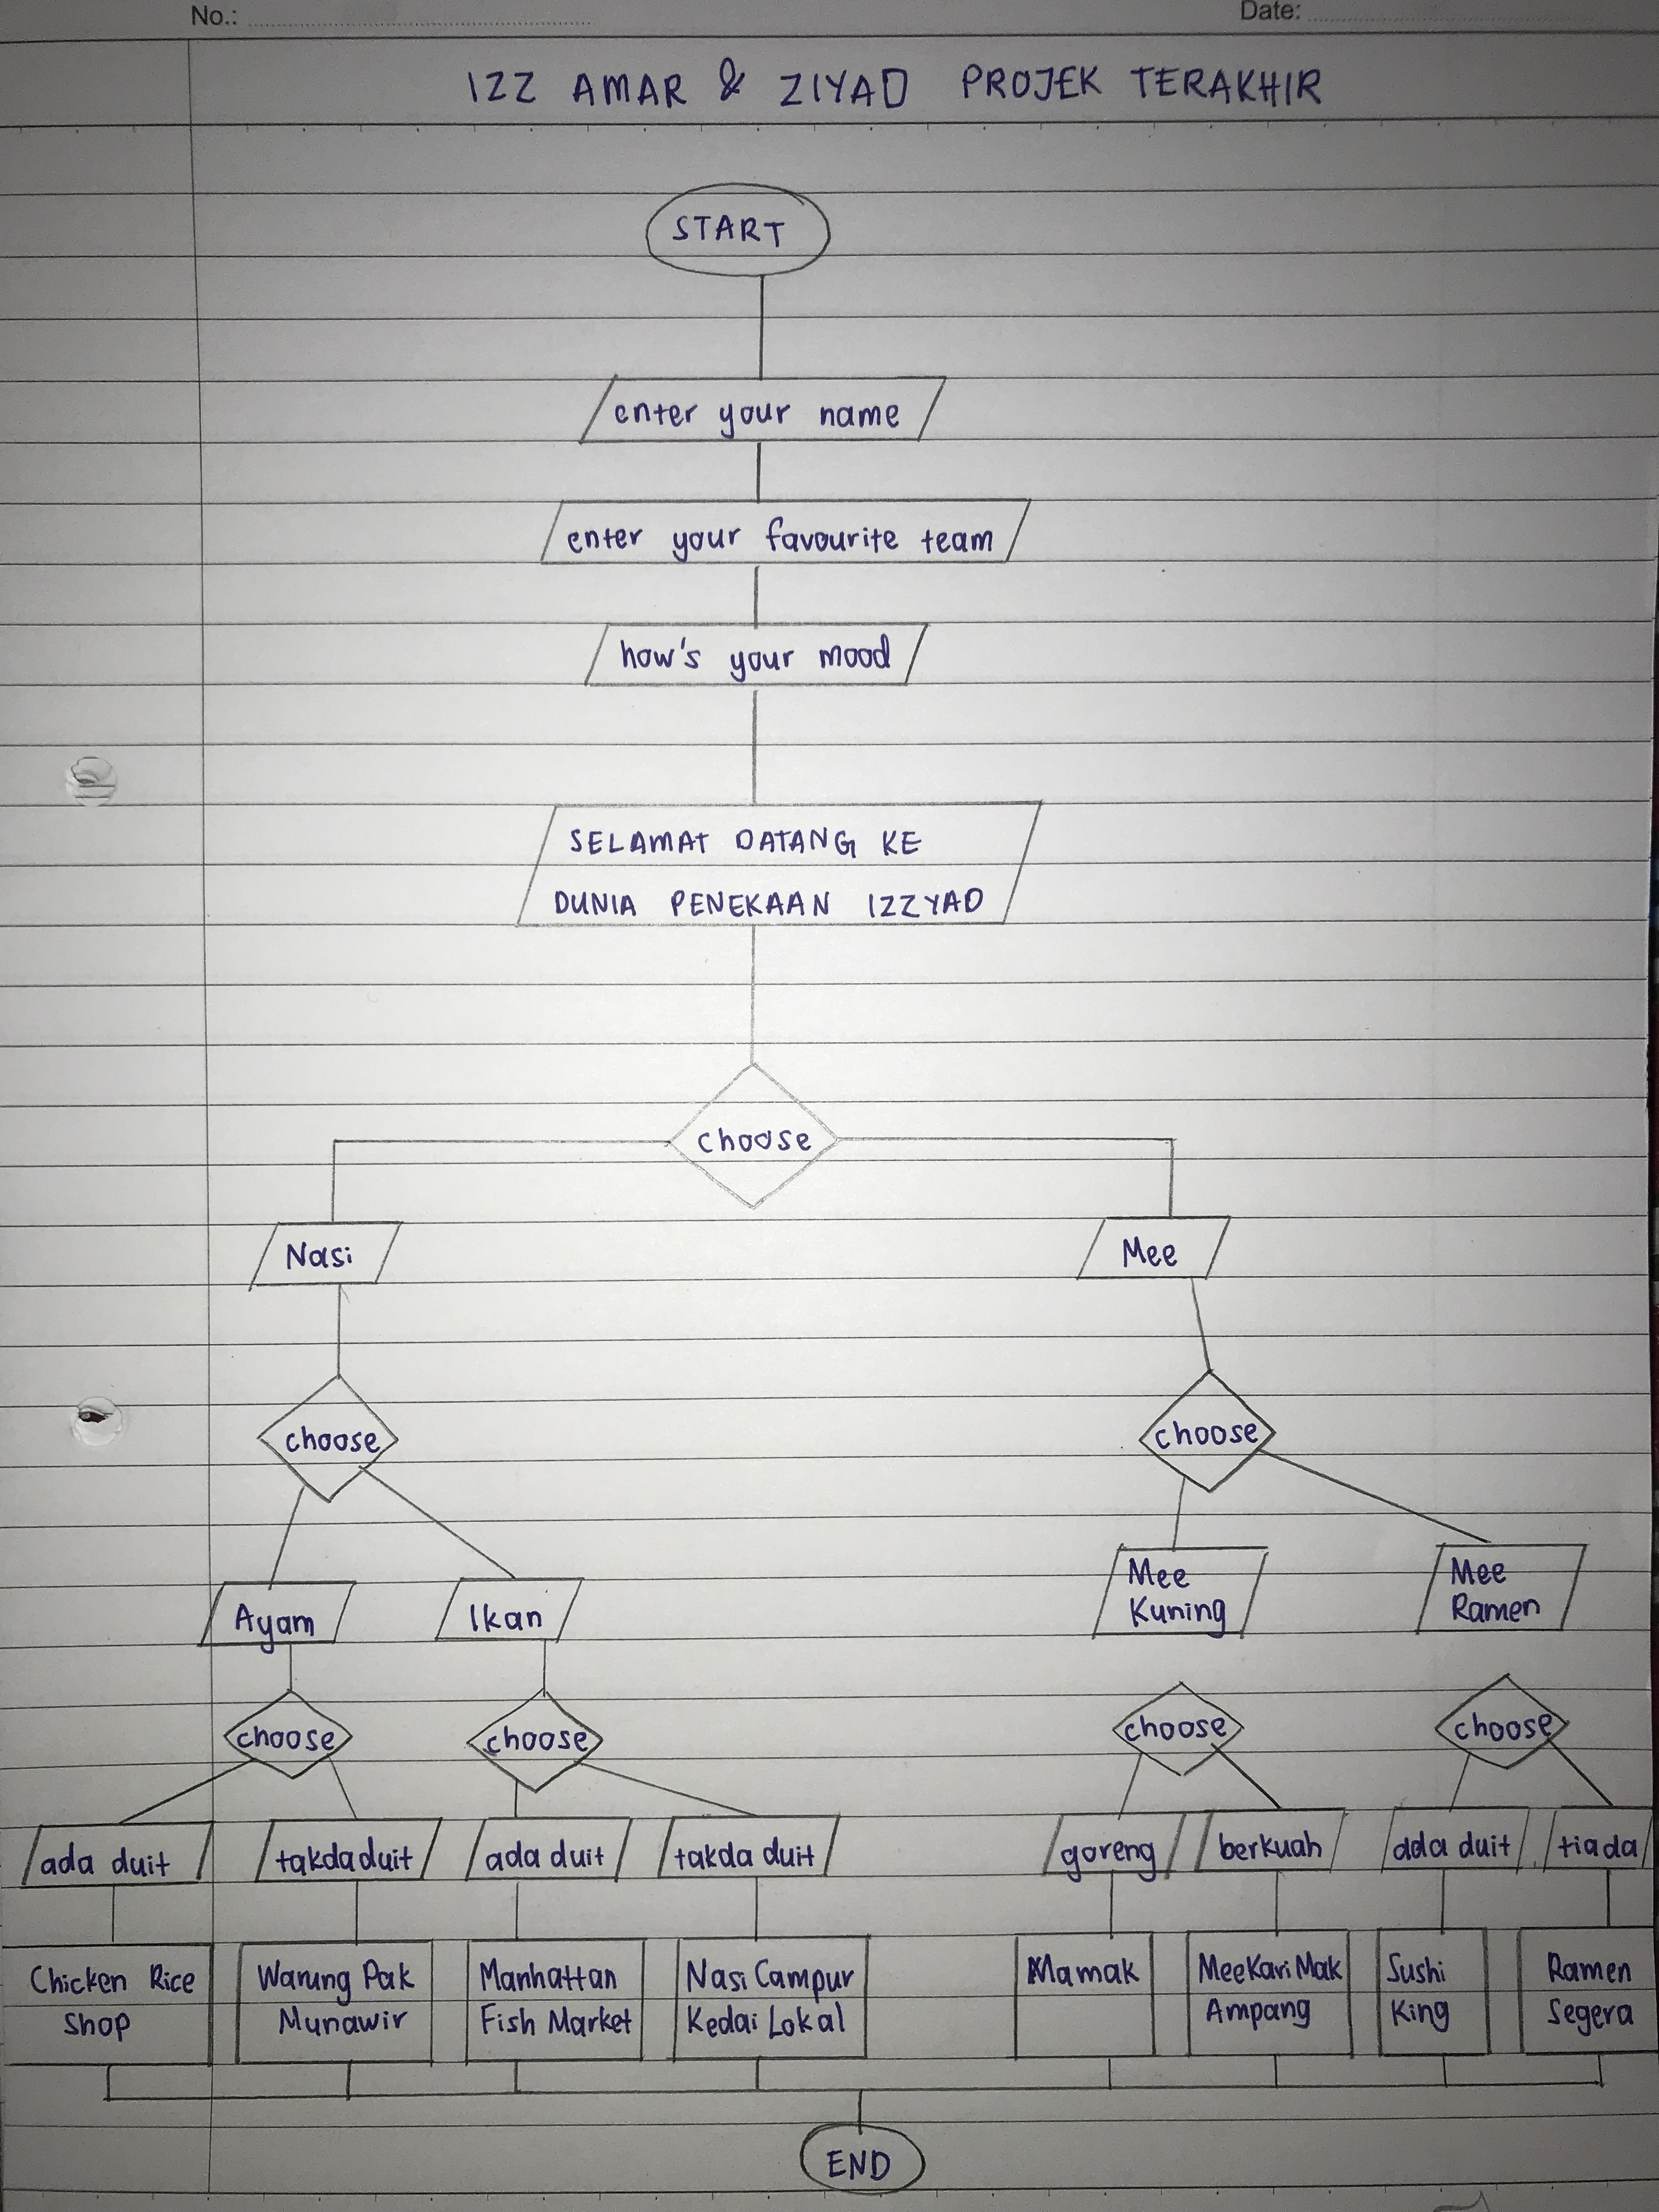 No.:
Date:
IZZ AMAR & ZIYAD PROJEK TERAKHIR
START
enter your name
enter your favourite team
how's your mood
SELAMAT DATANG KE
DUNIA PENEKAAN IZZYAD
choose
Nasi
Mee
choose
choose
Ayam
Ikan
Mee
Kuning
Mee
Ramen
choose
choose
choose
choose
ada duit
takda duit
ada duit
takda duit
goreng
berkuah
ada duit
tiada
Chicken Rice
Shop
Warung Pak
Munawir
Manhattan
Fish Market
Nasi Campur
Kedai Lokal
Mamak
Mee Kari Mak
Ampang
Sushi
King
Ramen
Segera
END